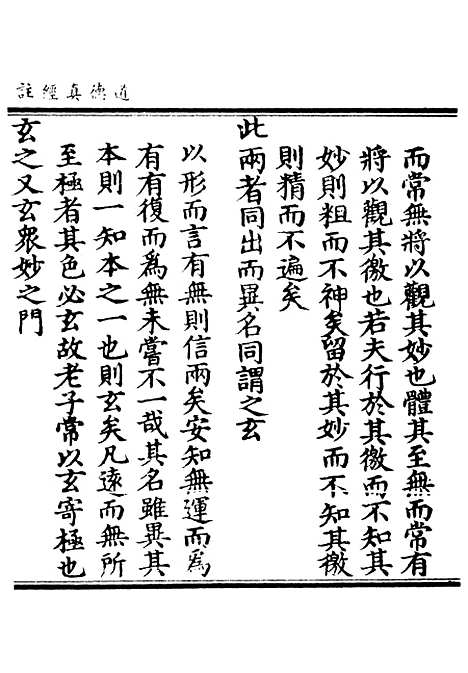 道德真經註
而常無將以觀其妙也體其至無而常有
將以觀其徼也若夫行於其徼而不知其
妙則粗而不神矣留於其妙而不知其徼
則精而不遍矣
此兩者同出而異名同謂之玄
以形而言有無則信兩矣安知無運而為
有有復而為無未嘗不一哉其名雖異其
本則一知本之一也則玄矣凡遠而無所
至極者其色必玄故老子常以玄寄極也
玄之又玄衆妙之門